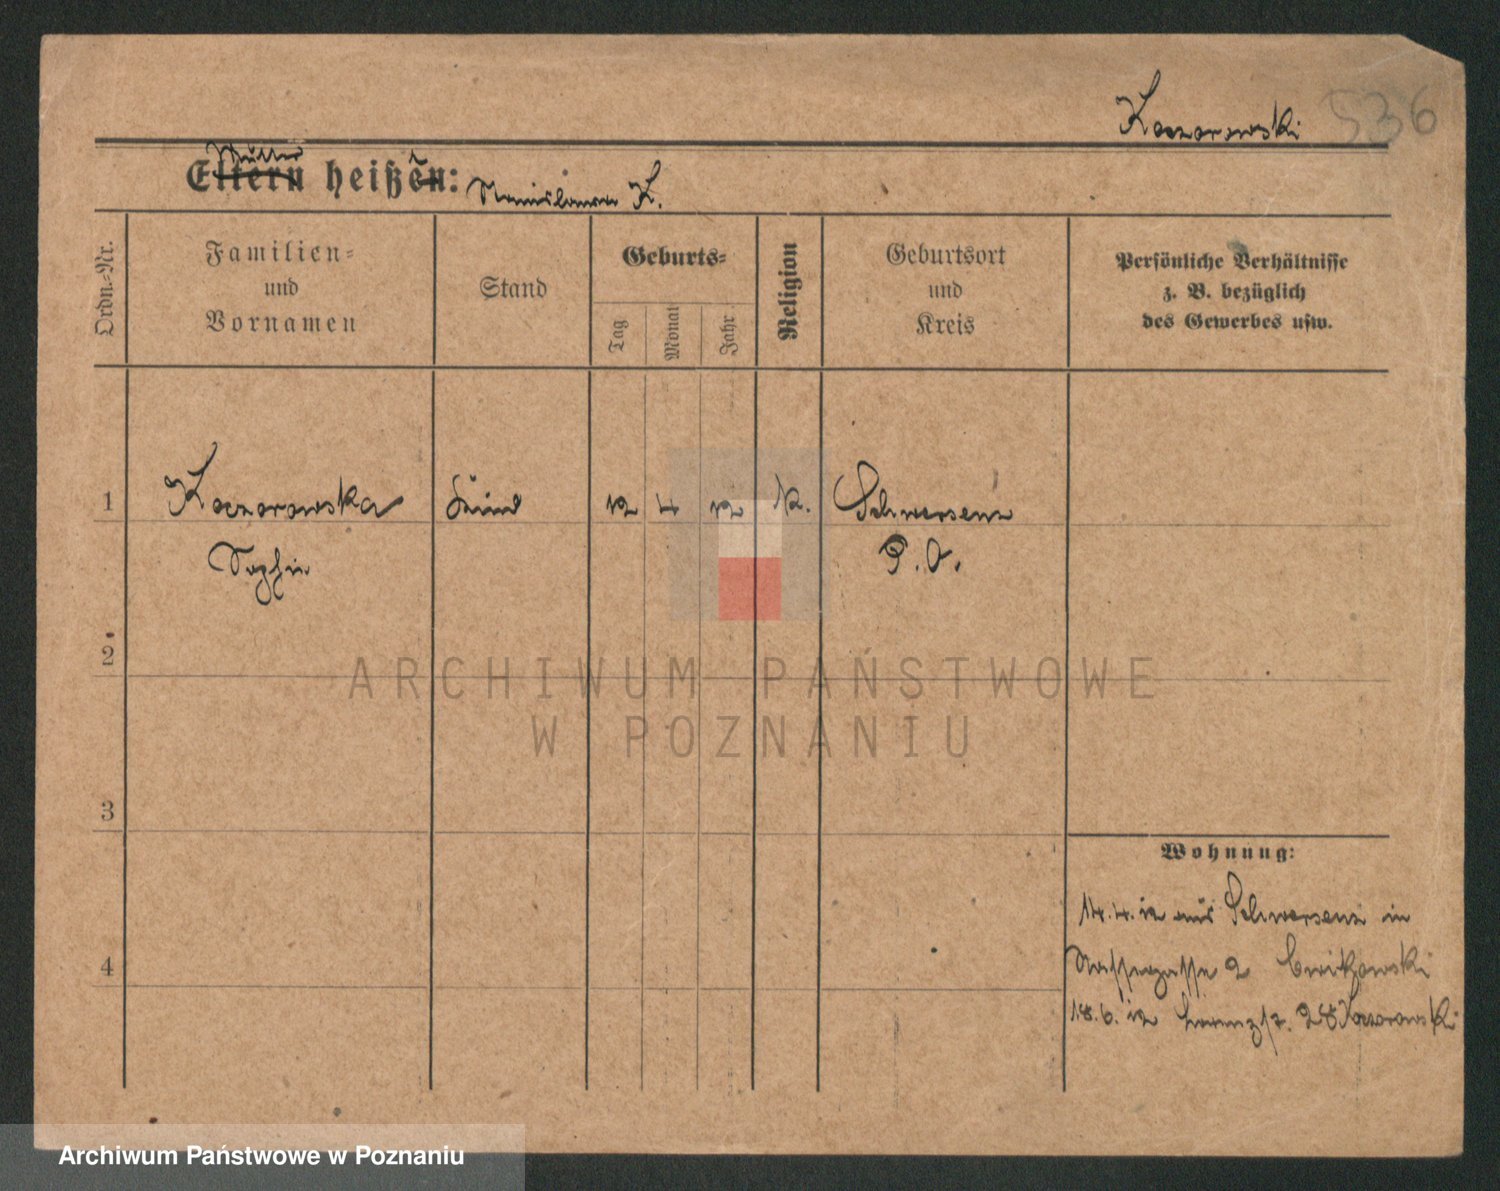 Koczorowski 536
Mutter
Eltern heißen: Stanislawa K.
Ordn.-Nr.
Familien-
und
Vornamen
Stand
Geburts-
Tag
Monat
Jahr
Religion
Geburtsort
und
Kreis
Persönliche Verhältnisse
z. B. bezüglich
des Gewerbes usw.
1 Koczorowska Kind 12 4 12 K. Schwersenz
Sophie P. O.
2
3
4
Wohnung:
14.4.12 aus Schwersenz in
2 Cwitkowski
18.6.12 28 Koczorowski
ARCHIWUM PAŃSTWOWE
W POZNANIU
Archiwum Państwowe w Poznaniu